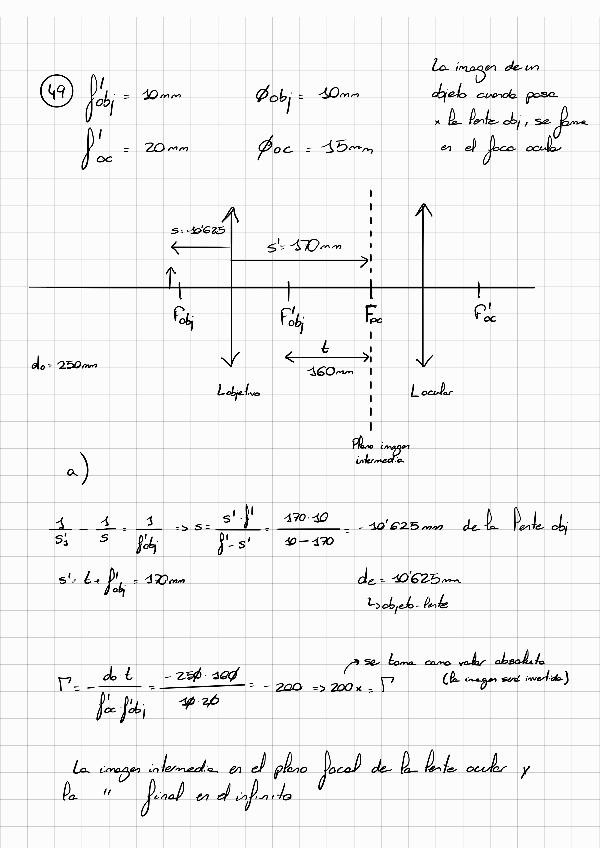 49 f'obj = 10mm  Øobj = 10mm
f'oc = 20mm  Øoc = 15mm
La imagen de un
objeto cuando pasa
x la lente obj, se forma
en el foco ocular
s=-10'625
s' = 170mm
Fobj  F'obj  Foc  F'oc
t
160mm
do = 250mm
Lobjetivo  Locular
Plano imagen
intermedia
a)
1/s'₁ - 1/s = 1/f'obj => s = s'·f'/f'-s' = 170·10/10-170 = -10'625mm de la lente obj
s' = t + f'obj = 170mm  de = 10'625mm
↳ objeto-lente
↗ se toma como valor absoluto
(la imagen será invertida)
Γ = - do t/f'oc f'obj = -250·160/10·20 = -200 => 200x = Γ
La imagen intermedia en el plano focal de la lente ocular y
la " final en el infinito